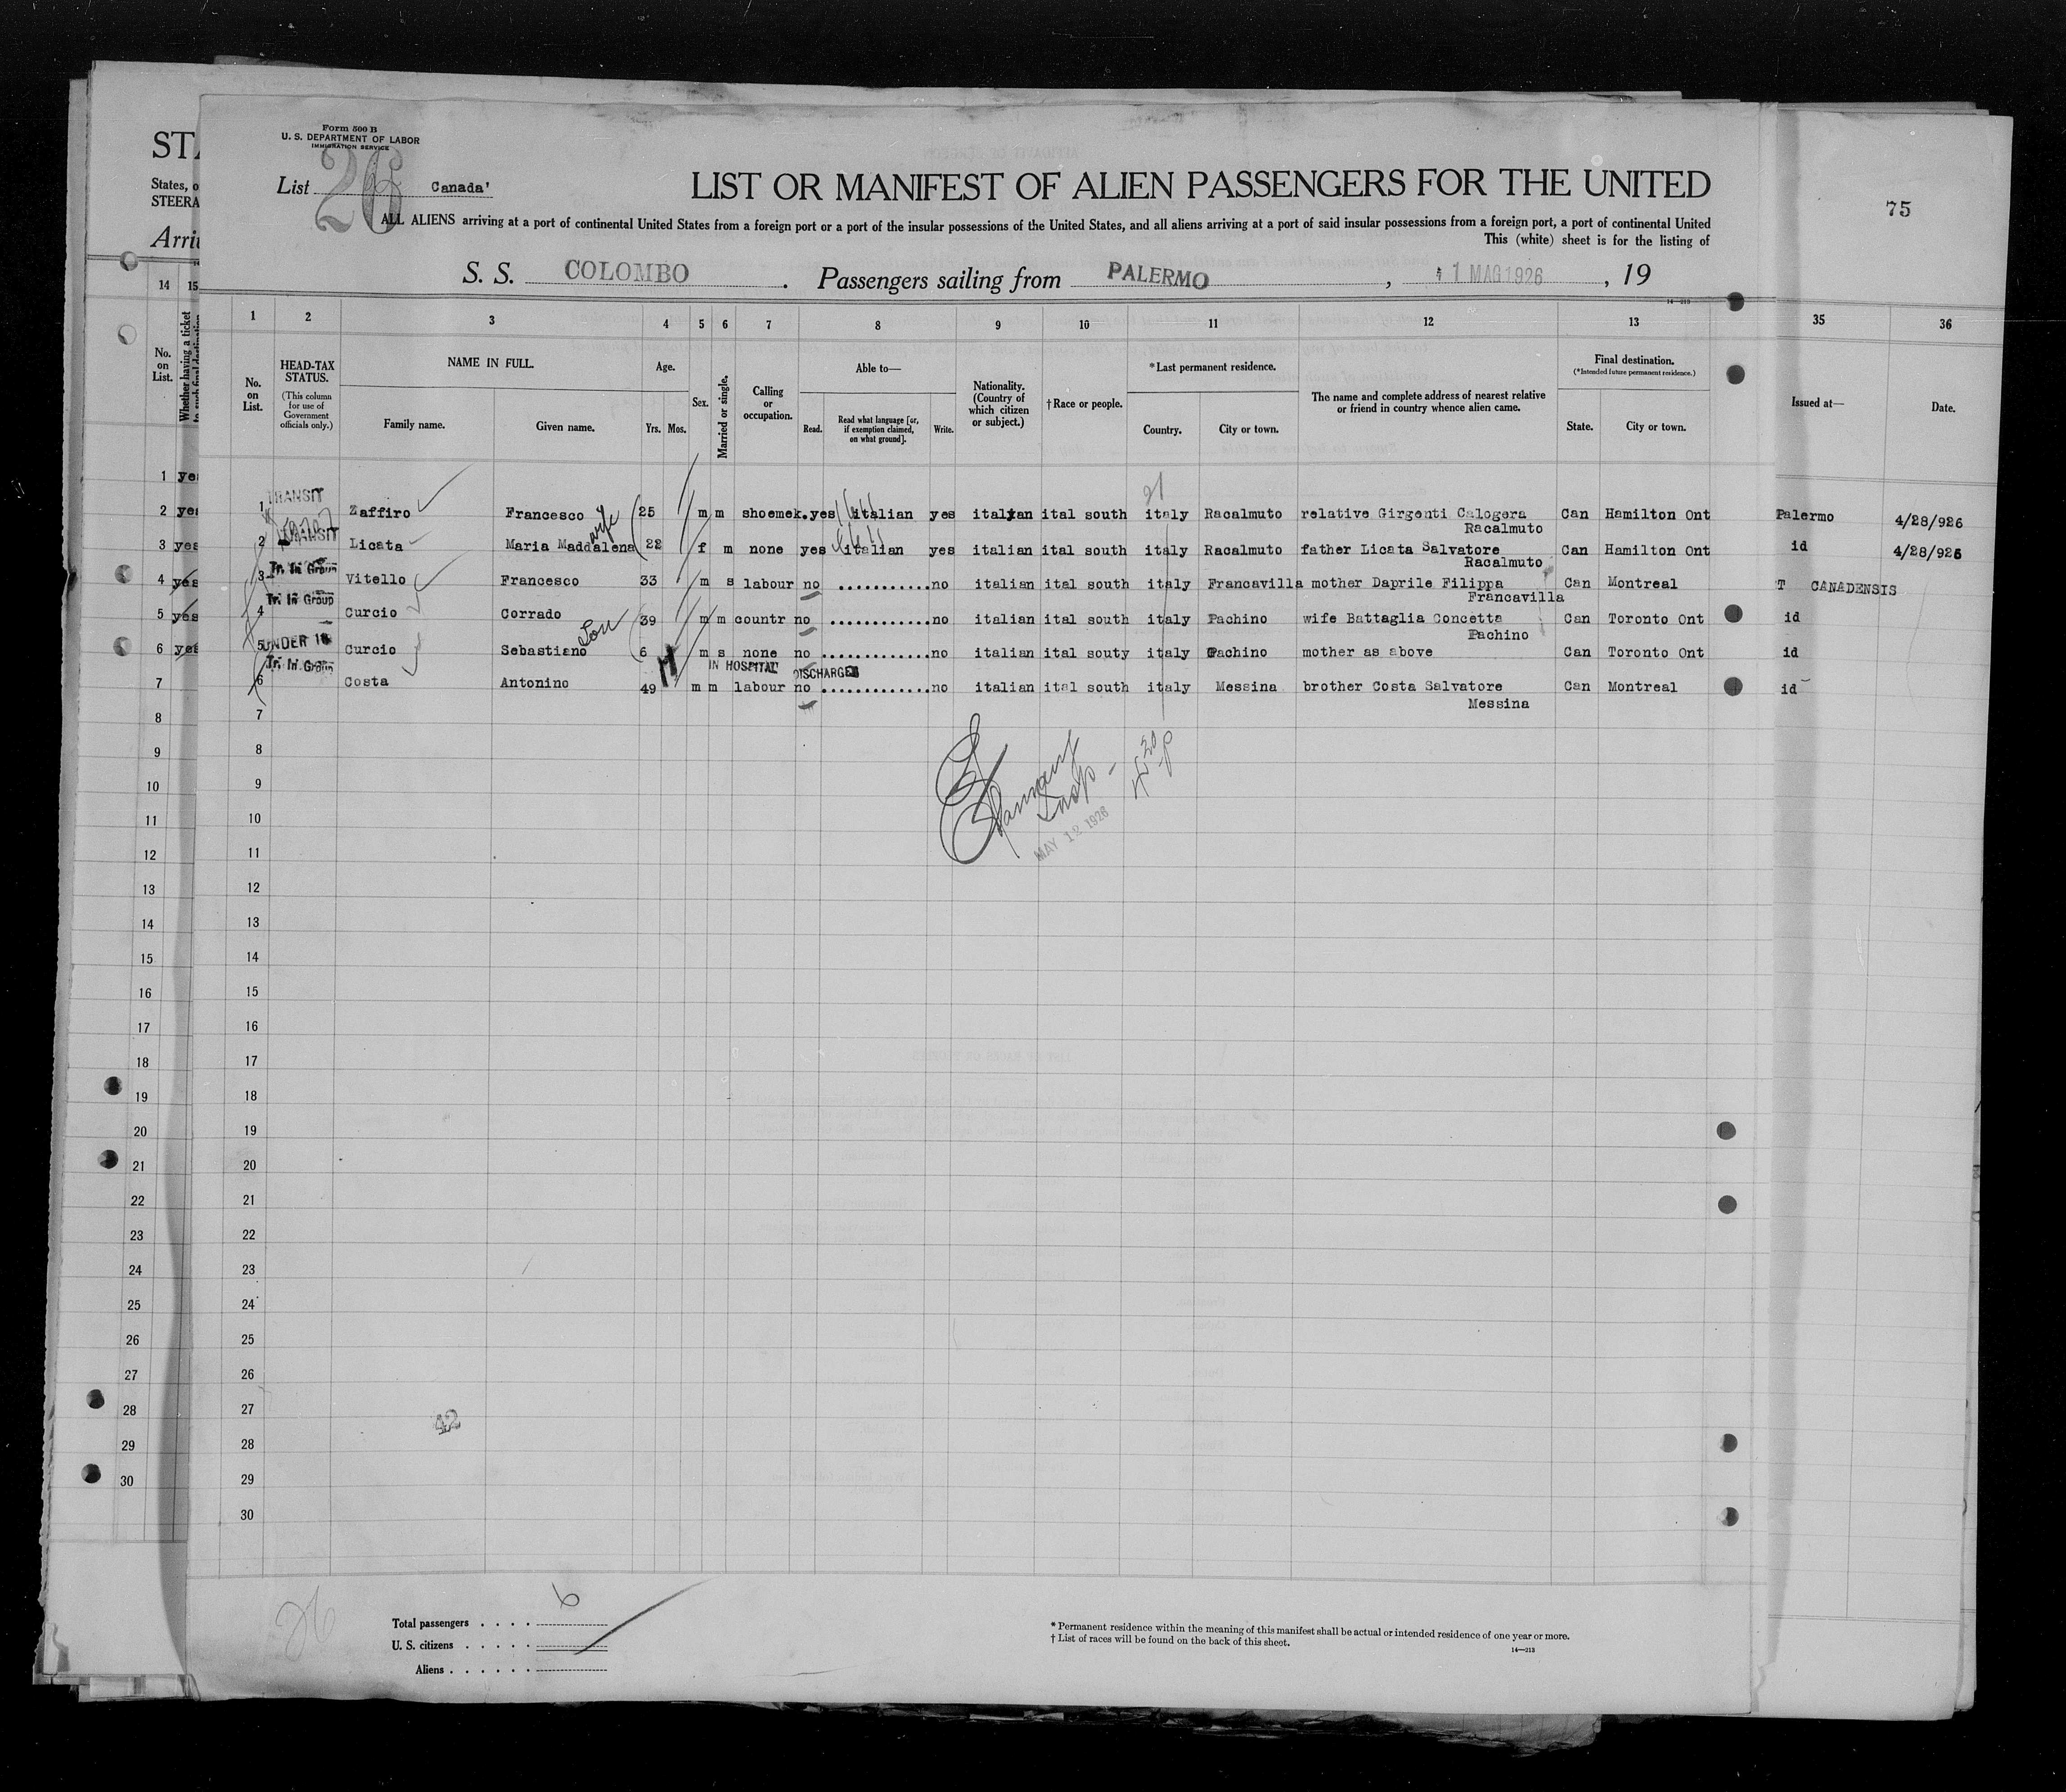 Form 500 B
U. S. DEPARTMENT OF LABOR
IMMIGRATION SERVICE
List 26 Canada'
LIST OR MANIFEST OF ALIEN PASSENGERS FOR THE UNITED
ALL ALIENS arriving at a port of continental United States from a foreign port or a port of the insular possessions of the United States, and all aliens arriving at a port of said insular possessions from a foreign port, a port of continental United
This (white) sheet is for the listing of
S. S. COLOMBO . Passengers sailing from PALERMO , 1 MAG 1926 , 19
14—213
STA
States, o
STEERA
Arri
75
1 2 3 4 5 6 7 8 9 10 11 12 13
14 15
35 36
No. on List.
Whether having a ticket
No. on List.
HEAD-TAX STATUS.
(This column for use of Government officials only.)
NAME IN FULL.
Family name. Given name.
Age.
Yrs. Mos.
Sex.
Married or single.
Calling or occupation.
Able to—
Read. Read what language [or, if exemption claimed, on what ground]. Write.
Nationality. (Country of which citizen or subject.)
†Race or people.
*Last permanent residence.
Country. City or town.
The name and complete address of nearest relative or friend in country whence alien came.
Final destination.
(*Intended future permanent residence.)
State. City or town.
Issued at— Date.
1 yes
TRANSIT
2 yes 1 Zaffiro Francesco 25 m m shoemek. yes italian yes italian ital south italy Racalmuto relative Girgenti Calogera Can Hamilton Ont Palermo 4/28/926
Racalmuto
wife
TRANSIT
3 yes 2 Licata Maria Maddalena 22 f m none yes italian yes italian ital south italy Racalmuto father Licata Salvatore Can Hamilton Ont id 4/28/926
Racalmuto
Tr. In Group
4 yes 3 Vitello Francesco 33 m s labour no ............no italian ital south italy Francavilla mother Daprile Filippa Can Montreal T CANADENSIS
Francavilla
Tr. In Group
5 yes 4 Curcio Corrado 39 m m countr no ............no italian ital south italy Pachino wife Battaglia Concetta Can Toronto Ont id
Pachino
Son
UNDER 16
6 yes 5 Curcio Sebastiano 6 m s none no ............no italian ital souty italy Pachino mother as above Can Toronto Ont id
Tr. In Group
IN HOSPITAL DISCHARGED
7 6 Costa Antonino 49 m m labour no ............no italian ital south italy Messina brother Costa Salvatore Can Montreal id
Messina
8 7
9 8
10 9
11 10
12 11
13 12
14 13
15 14
16 15
17 16
18 17
19 18
20 19
21 20
22 21
23 22
24 23
25 24
26 25
27 26
28 27
29 28
30 29
30
Insp -
MAY 12 1926
42
26
Total passengers . . . . 6
U. S. citizens . . . . .
Aliens . . . . . .
* Permanent residence within the meaning of this manifest shall be actual or intended residence of one year or more.
† List of races will be found on the back of this sheet.
14—213